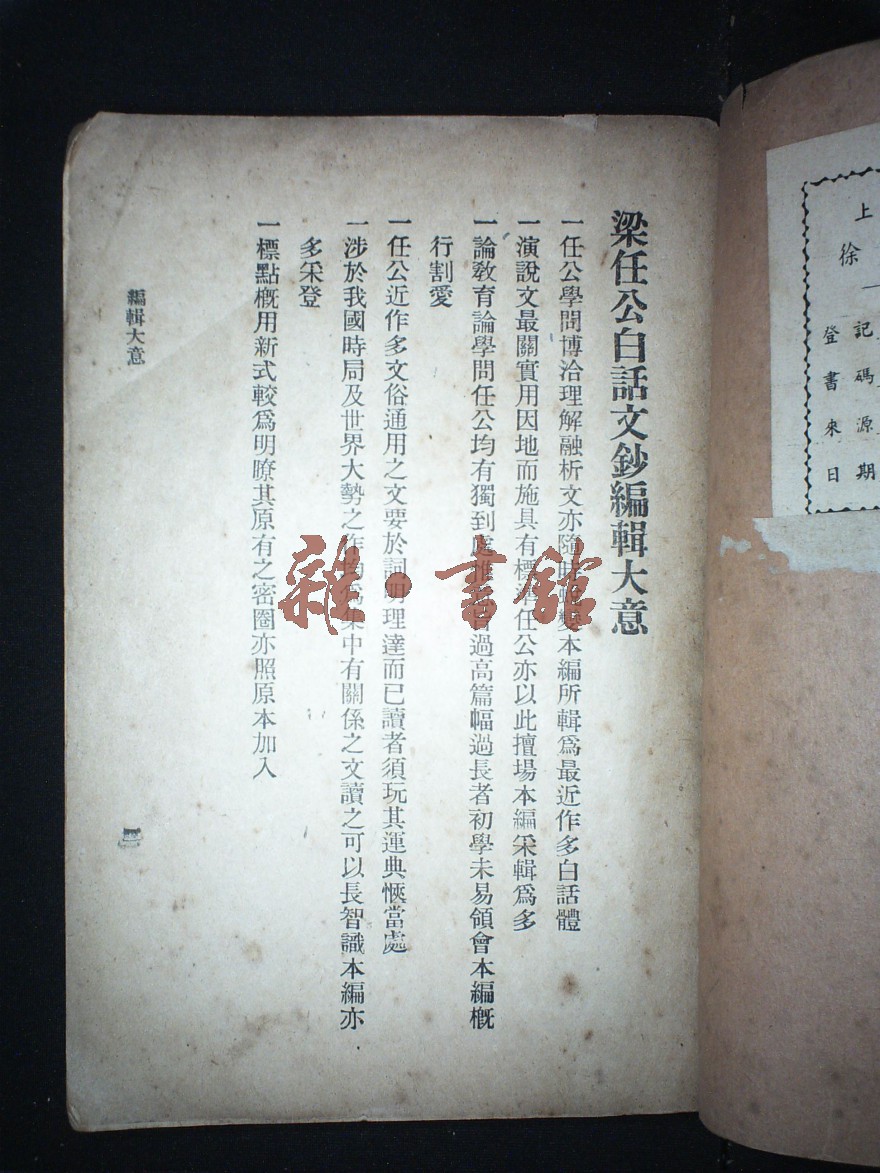 上
徐
登記
書碼
來源
日期
梁任公白話文鈔編輯大意
一任公學問博洽理解融析文亦隨時變本編所輯爲最近作多白話體
一演說文最關實用因地而施具有標準任公亦以此擅場本編采輯爲多
一論教育論學問任公均有獨到處惟過高篇幅過長者初學未易領會本編概
行割愛
一任公近作多文俗通用之文要於詞明理達而已讀者須玩其運典愜當處
一涉於我國時局及世界大勢之作均爲集中有關係之文讀之可以長智識本編亦
多采登
一標點概用新式較爲明瞭其原有之密圈亦照原本加入
編輯大意
雜·書館